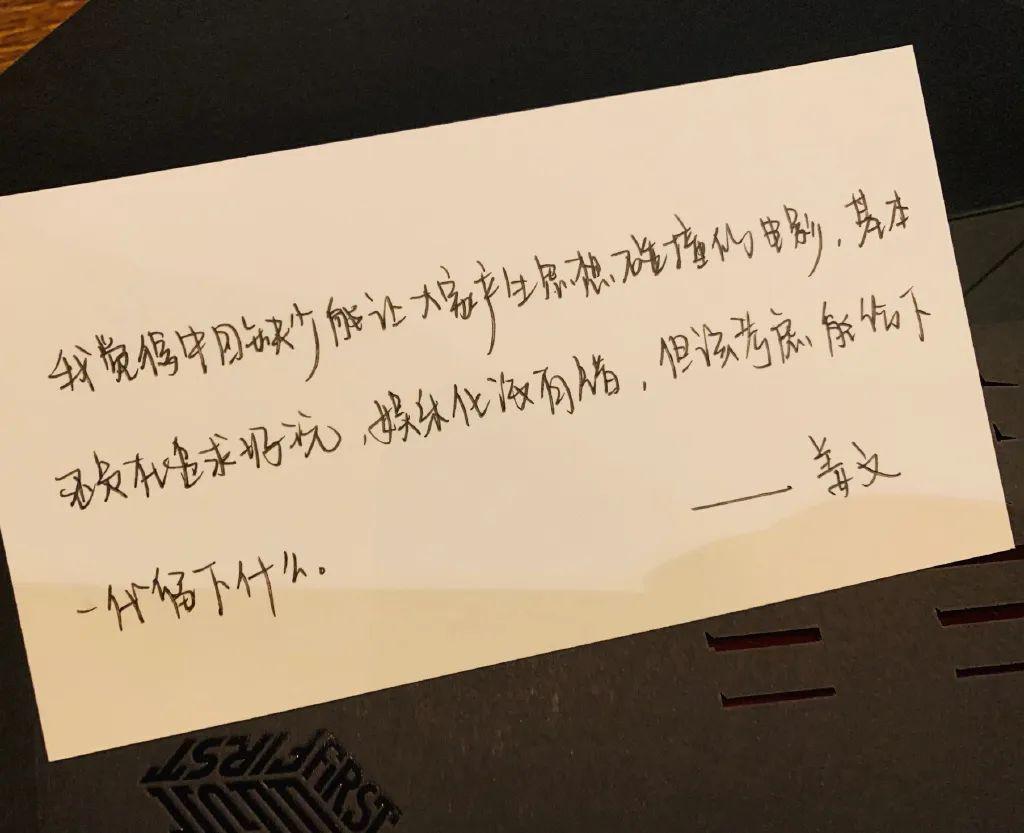 我觉得中国缺少能让大家产生思想碰撞的电影，基本
追求好玩，娱乐化没有错，但该考虑能给下
—— 姜文
一代留下什么。
FIRST
FIRST